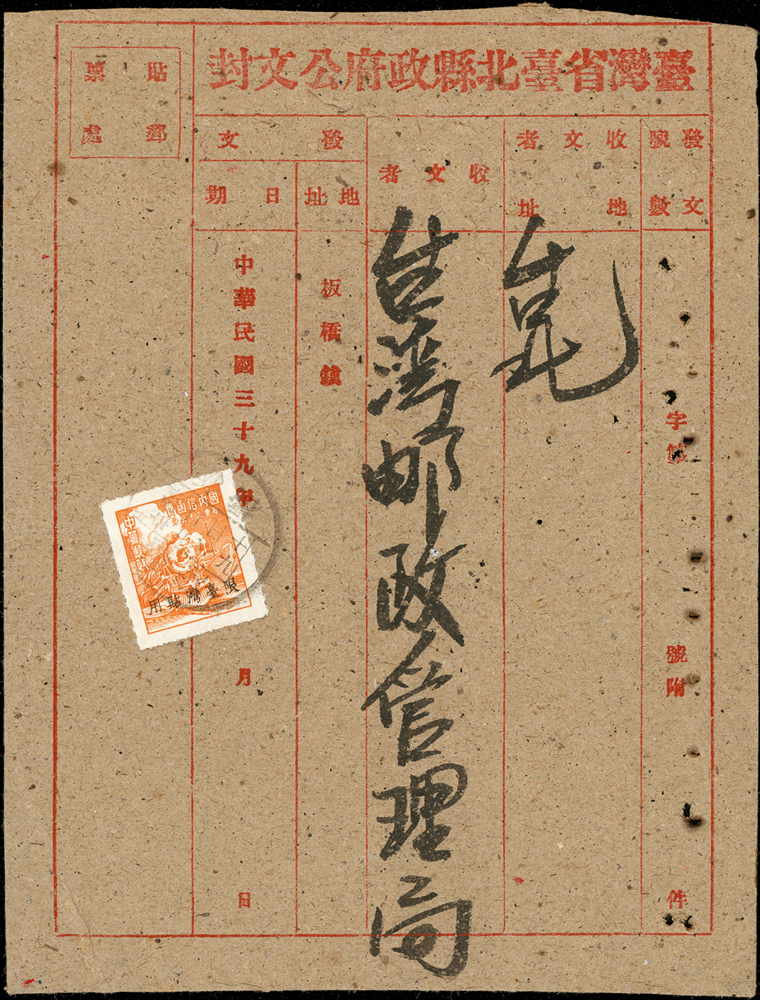 臺灣省臺北縣政府公文封
發文號數
字第
號附
件
收文者地址
台北
收文者
台湾邮政管理局
發文
地址
板橋鎮
日期
中華民國三十九年
月
日
貼郵票處
國內信函費
中華郵政
限臺灣貼用